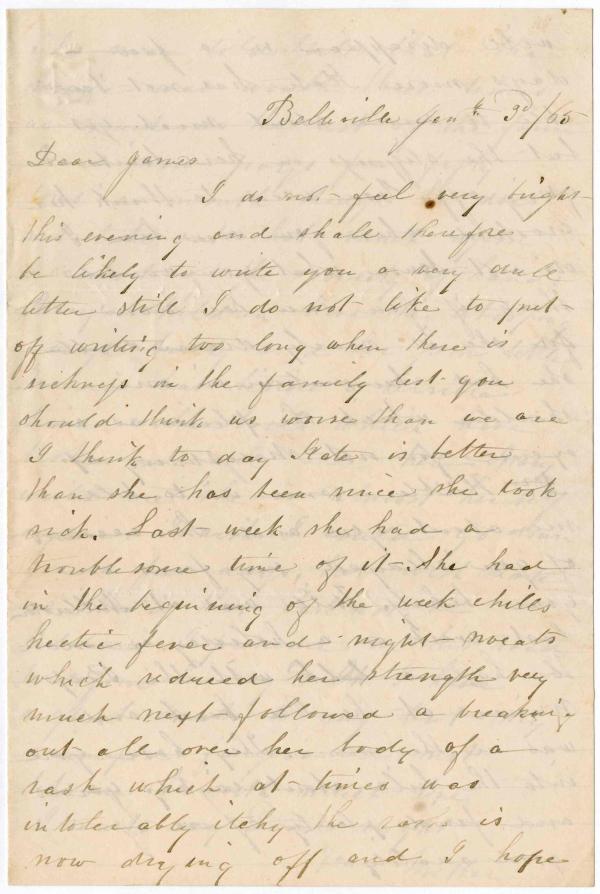 Belleville Jany 3d/65
Dear James
I do not feel very bright
this evening and shall therefore
be likely to write you a very dull
letter still I do not like to put
off writing too long when there is
sickness in the family lest you
should think us worse than we are
I think to day Kate is better
than she has been since she took
sick. Last week she had a
troublesome time of it. She had
in the beginning of the week chills
hectic fever and night sweats
which reduced her strength very
much next followed a breaking
out all over her body of a
rash which at times was
intolerably itchy the rash is
now drying off and I hope